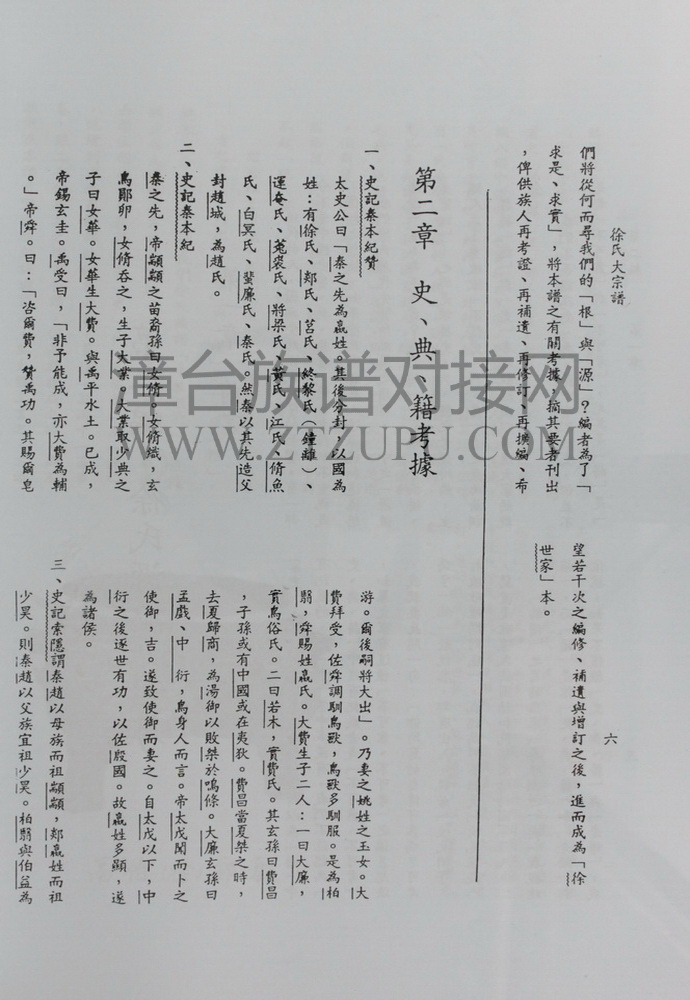 徐氏大宗譜
六
們將從何而尋我們的「根」與「源」？編者為了「
求是、求實」，將本譜之有關考據，摘其要者刊出
，俾供族人再考證、再補遺、再修訂、再擴編、希
望若干次之編修、補遺與增訂之後，進而成為「徐
世家」本。
第二章 史、典、籍考據
一、史記秦本紀贊
太史公曰「秦之先為嬴姓。其後分封，以國為
姓：有徐氏、郯氏、莒氏、終黎氏（鐘離）、
運奄氏、菟裘氏、將梁氏、黃氏、江氏、脩魚
氏、白冥氏、蜚廉氏、秦氏。然秦以其先造父
封趙城，為趙氏。
二、史記秦本紀
秦之先，帝顓頊之苗裔孫曰女脩。女脩織，玄
鳥隕卵，女脩吞之，生子大業。大業取少典之
子曰女華。女華生大費。與禹平水土。已成，
帝錫玄圭。禹受曰，「非予能成，亦大費為輔
。」帝舜。曰：「咨爾費，贊禹功。其賜爾皂
游。爾後嗣將大出」。乃妻之姚姓之玉女。大
費拜受，佐舜調馴鳥獸，鳥獸多馴服。是為柏
翳，舜賜姓嬴氏。大費生子二人：一曰大廉，
實鳥俗氏。二曰若木，實費氏。其玄孫曰費昌
，子孫或有中國或在夷狄。費昌當夏桀之時，
去夏歸商，為湯御以敗桀於鳴條。大廉玄孫曰
孟戲、中 衍，鳥身人而言。帝太戊聞而卜之
使御，吉。遂致使御而妻之。自太戊以下，中
衍之後遂世有功，以佐殷國。故嬴姓多顯，遂
為諸侯。
三、史記索隱謂秦趙以母族而祖顓頊，郯嬴姓而祖
少昊。則秦趙以父族宜祖少昊。柏翳與伯益為
章台族谱对接网
WWW.ZTZUPU.COM